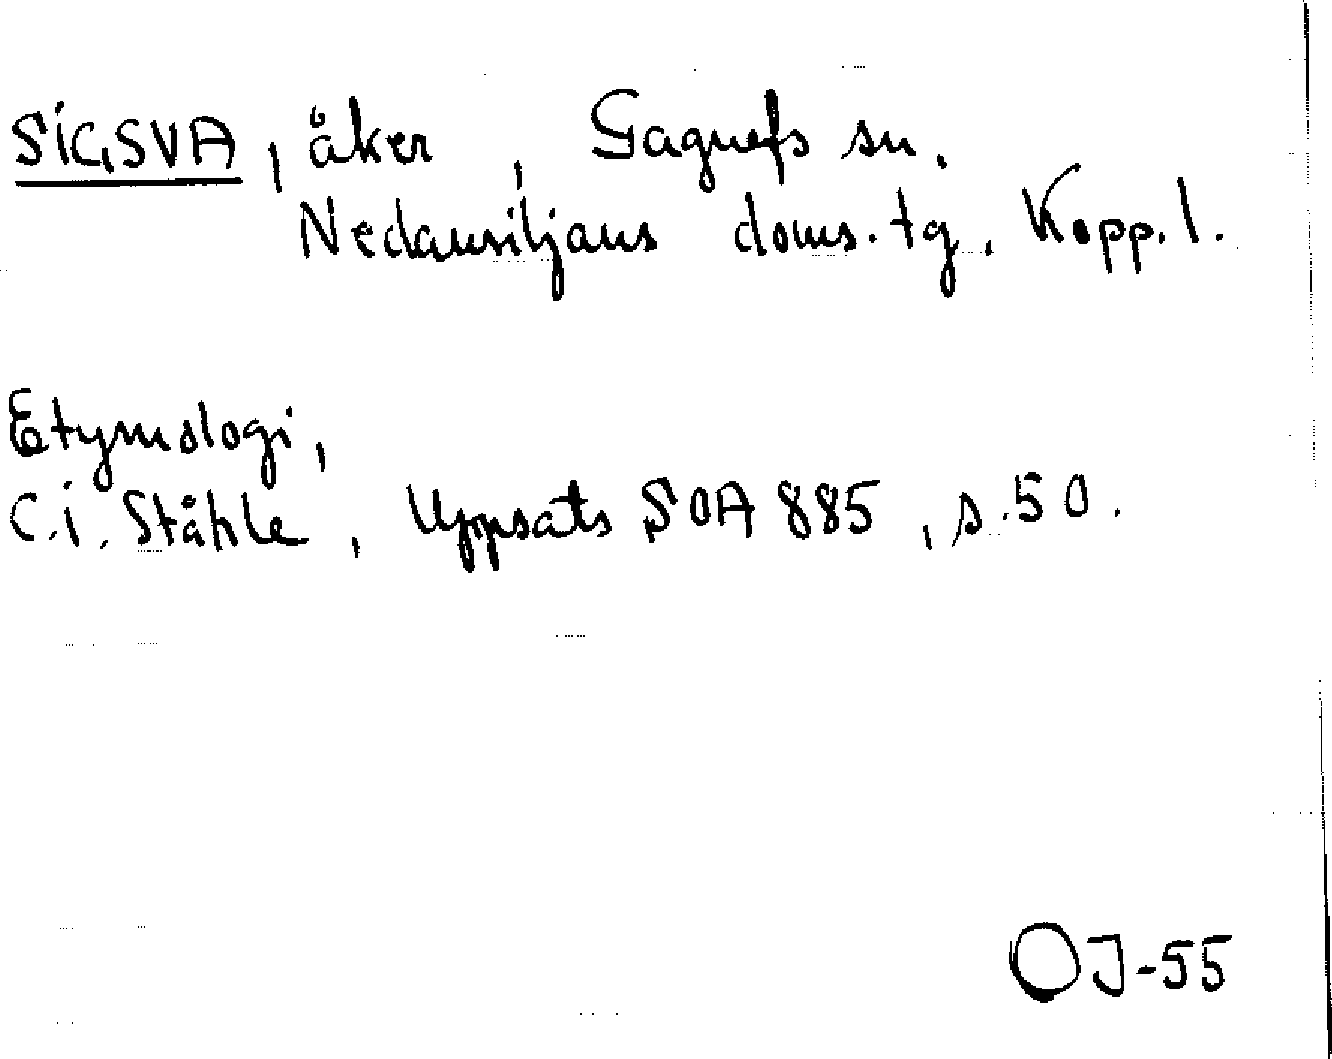 SIGSVA, åker, Gagnefs sn.
Nedansiljans doms. tg. Kopp. l.
Etymologi,
C.I. Ståhle, Uppsats SOA 885, s. 50.
OJ-55